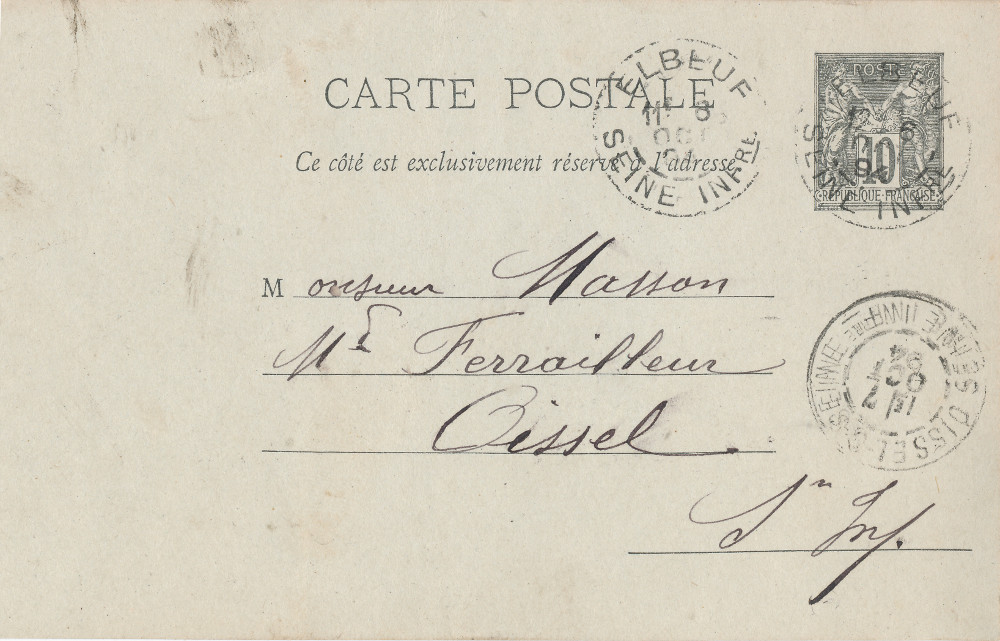 CARTE POSTALE
Ce côté est exclusivement réservé à l'adresse.
ELBEUF
SEINE INFRE
POSTES
10
RÉPUBLIQUE FRANÇAISE
ELBEUF
SEINE INFRE
Monsieur Masson
Md Ferrailleur
Oissel
Sn Inf.
OISSEL